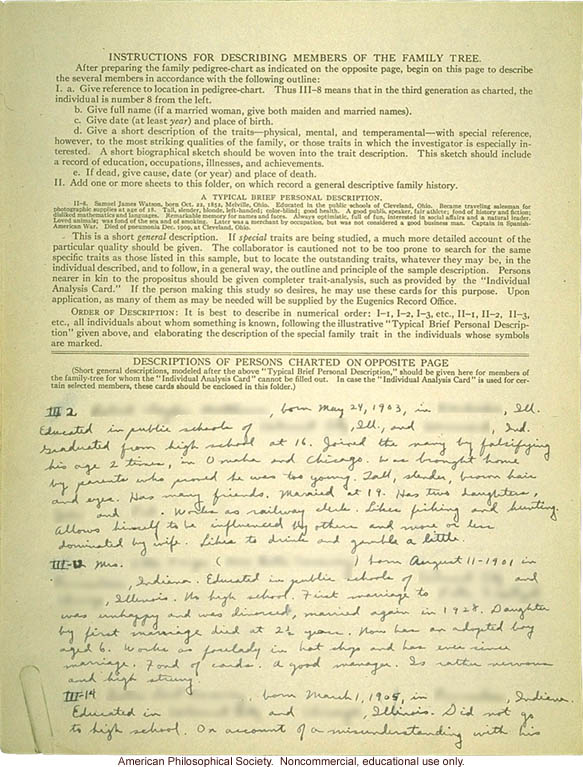 INSTRUCTIONS FOR DESCRIBING MEMBERS OF THE FAMILY TREE.
After preparing the family pedigree-chart as indicated on the opposite page, begin on this page to describe
the several members in accordance with the following outline:
I. a. Give reference to location in pedigree-chart. Thus III-8 means that in the third generation as charted, the
individual is number 8 from the left.
b. Give full name (if a married woman, give both maiden and married names).
c. Give date (at least year) and place of birth.
d. Give a short description of the traits—physical, mental, and temperamental—with special reference,
however, to the most striking qualities of the family, or those traits in which the investigator is especially in-
terested. A short biographical sketch should be woven into the trait description. This sketch should include
a record of education, occupations, illnesses, and achievements.
e. If dead, give cause, date (or year) and place of death.
II. Add one or more sheets to this folder, on which record a general descriptive family history.
A TYPICAL BRIEF PERSONAL DESCRIPTION.
II-8. Samuel James Watson, born Oct. 22, 1852, Melville, Ohio. Educated in the public schools of Cleveland, Ohio. Became traveling salesman for
photographic supplies at age of 18. Tall, slender, blonde, left-handed; color-blind; good health. A good public speaker, fair athlete; fond of history and fiction;
disliked mathematics and languages. Remarkable memory for names and faces. Always optimistic, full of fun, interested in social affairs and a natural leader.
Loved animals; was fond of the sea and of smoking. Later was a merchant by occupation, but was not considered a good business man. Captain in Spanish-
American War. Died of pneumonia Dec. 1909, at Cleveland, Ohio.
This is a short general description. If special traits are being studied, a much more detailed account of the
particular quality should be given. The collaborator is cautioned not to be too prone to search for the same
specific traits as those listed in this sample, but to locate the outstanding traits, whatever they may be, in the
individual described, and to follow, in a general way, the outline and principle of the sample description. Persons
nearer in kin to the propositus should be given completer trait-analysis, such as provided by the "Individual
Analysis Card." If the person making this study so desires, he may use these cards for this purpose. Upon
application, as many of them as may be needed will be supplied by the Eugenics Record Office.
ORDER OF DESCRIPTION: It is best to describe in numerical order: I-1, I-2, I-3, etc., II-1, II-2, II-3,
etc., all individuals about whom something is known, following the illustrative "Typical Brief Personal Descrip-
tion" given above, and elaborating the description of the special family trait in the individuals whose symbols
are marked.
DESCRIPTIONS OF PERSONS CHARTED ON OPPOSITE PAGE
(Short general descriptions, modeled after the above "Typical Brief Personal Description," should be given here for members of
the family-tree for whom the "Individual Analysis Card" cannot be filled out. In case the "Individual Analysis Card" is used for cer-
tain selected members, these cards should be enclosed in this folder.)
III 2 , born May 24, 1903, in , Ill.
Educated in public schools of , Ill., and , Ind.
Graduated from high school at 16. Joined the navy by falsifying
his age 2 times, in Omaha and Chicago. Was brought home
by parents who proved he was too young. Tall, slender, brown hair
and eyes. Has many friends. Married at 19. Has two daughters,
and . Works as railway clerk. Likes fishing and hunting.
Allows himself to be influenced by others and more or less
dominated by wife. Likes to drink and gamble a little.
Mrs. ( ) born August 11-1901 in
, Indiana. Educated in public schools of and
, Illinois. No high school. First marriage to
was unhappy and was divorced, married again in 1928. Daughter
by first marriage died at 2½ years. Now has an adopted boy
aged 6. Works as forelady in hat shop and has ever since
marriage. Fond of cards. A good manager. Is rather nervous
and high strung.
III-14 , born March 1, 1905, in , Indiana.
Educated in and , Illinois. Did not go
to high school. On account of a misunderstanding with his
American Philosophical Society. Noncommercial, educational use only.